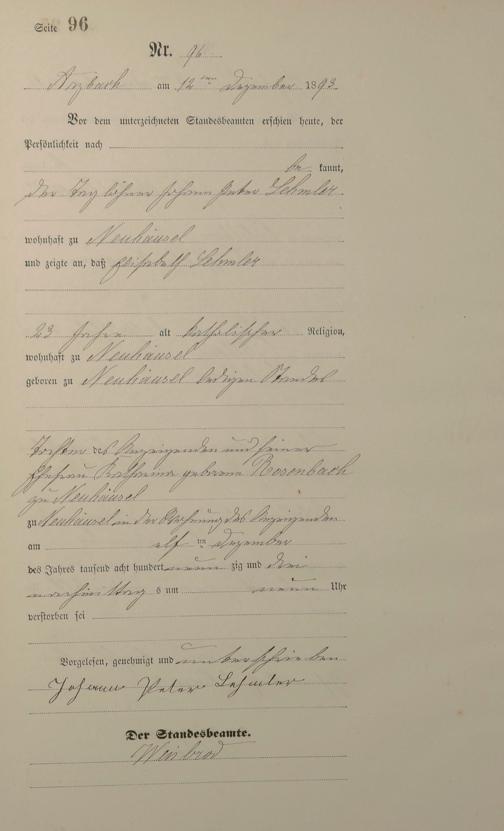 Seite 96
Nr. 96
Arzbach am 12ten Dezember 1893.
Vor dem unterzeichneten Standesbeamten erschien heute, der
Persönlichkeit nach
be kannt,
der Taglöhner Johann Peter Lehmler
wohnhaft zu Neuhäusel
und zeigte an, daß Elisabeth Lehmler
23 Jahre alt katholischer Religion,
wohnhaft zu Neuhäusel
geboren zu Neuhäusel ledigen Standes
Tochter des Anzeigenden und seiner
Ehefrau Katharina geborene Rosenbach
zu Neuhäusel
zu Neuhäusel in der Wohnung des Anzeigenden
am elf ten Dezember
des Jahres tausend acht hundert neun zig und drei
nachmittag s um neun Uhr
verstorben sei
Vorgelesen, genehmigt und unterschrieben
Johann Peter Lehmler
Der Standesbeamte.
Weinbrod